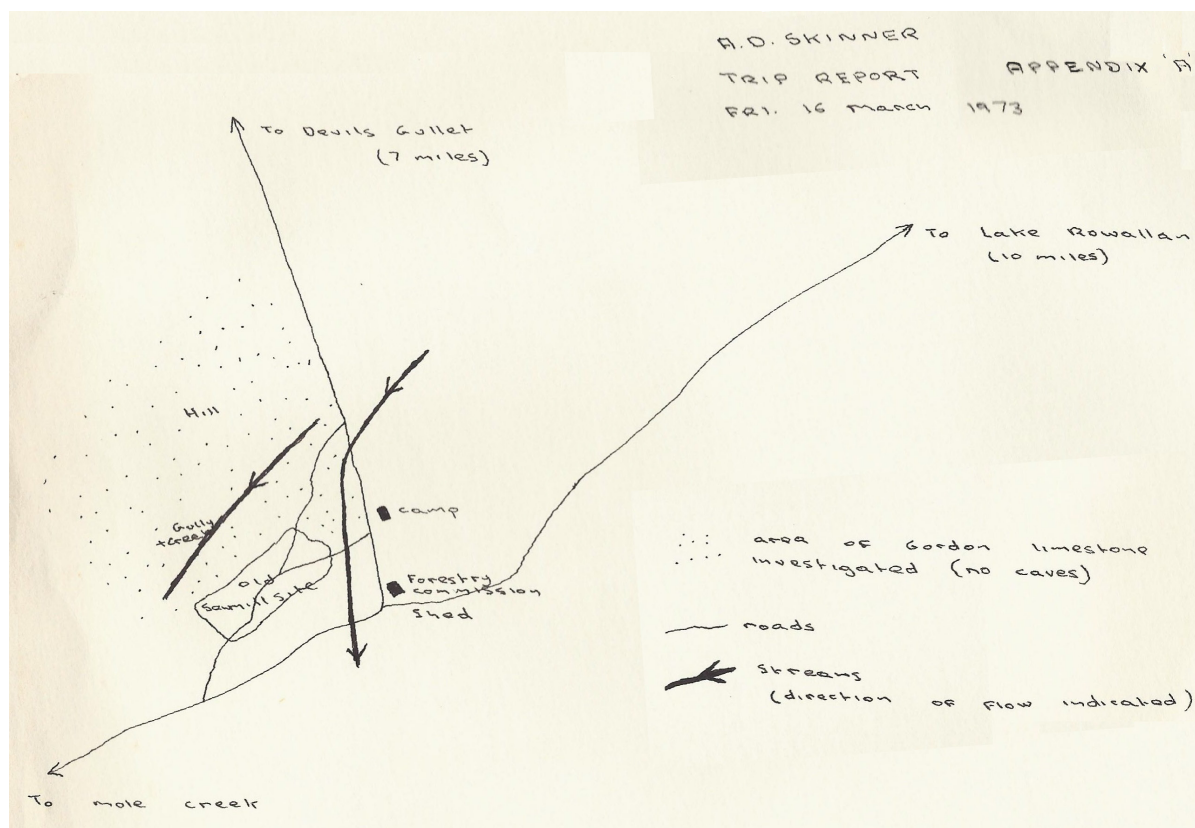 A.D. SKINNER
TRIP REPORT APPENDIX 'A'
FRI. 16 March 1973
To Devils Gullet
(7 miles)
To Lake Rowallan
(10 miles)
Hill
Gully
+creek
camp
Old
Sawmill Site
Forestry
commission
Shed
area of Gordon limestone
investigated (no caves)
roads
Streams
(direction of flow indicated)
To mole creek